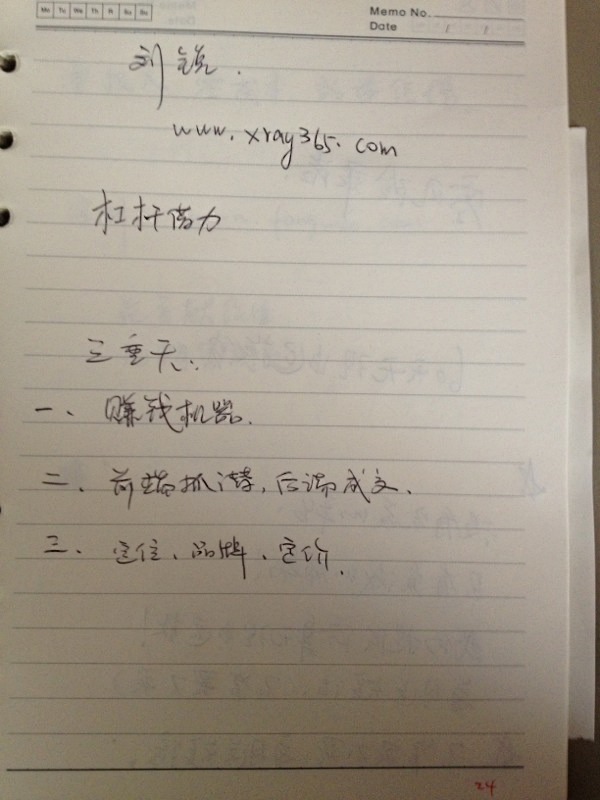 Mo Tu We Th Fr Sa Su
Memo No.
Date / /
刘锐.
www.xray365.com
杠杆借力
三重天:
一、赚钱机器.
二、前端抓潜,后端成交.
三、定位、品牌、定价.
24